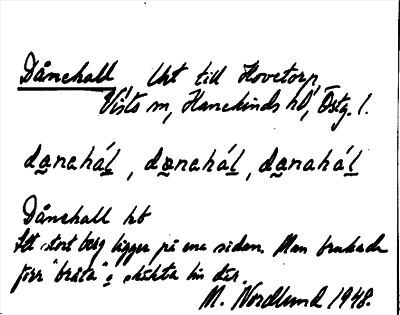 Dånehall, Uht till Hovetorp,
Vists sn, Hanekinds hd, Östg. l.
dα̲nahál̲, dα̲nahál̲, dα̲nahál̲
Dånehall hb
Ett stort berg ligger på ena sidan. Man brukade
förr "bräta" o skäkta lin där.
M. Nordlund 1948.